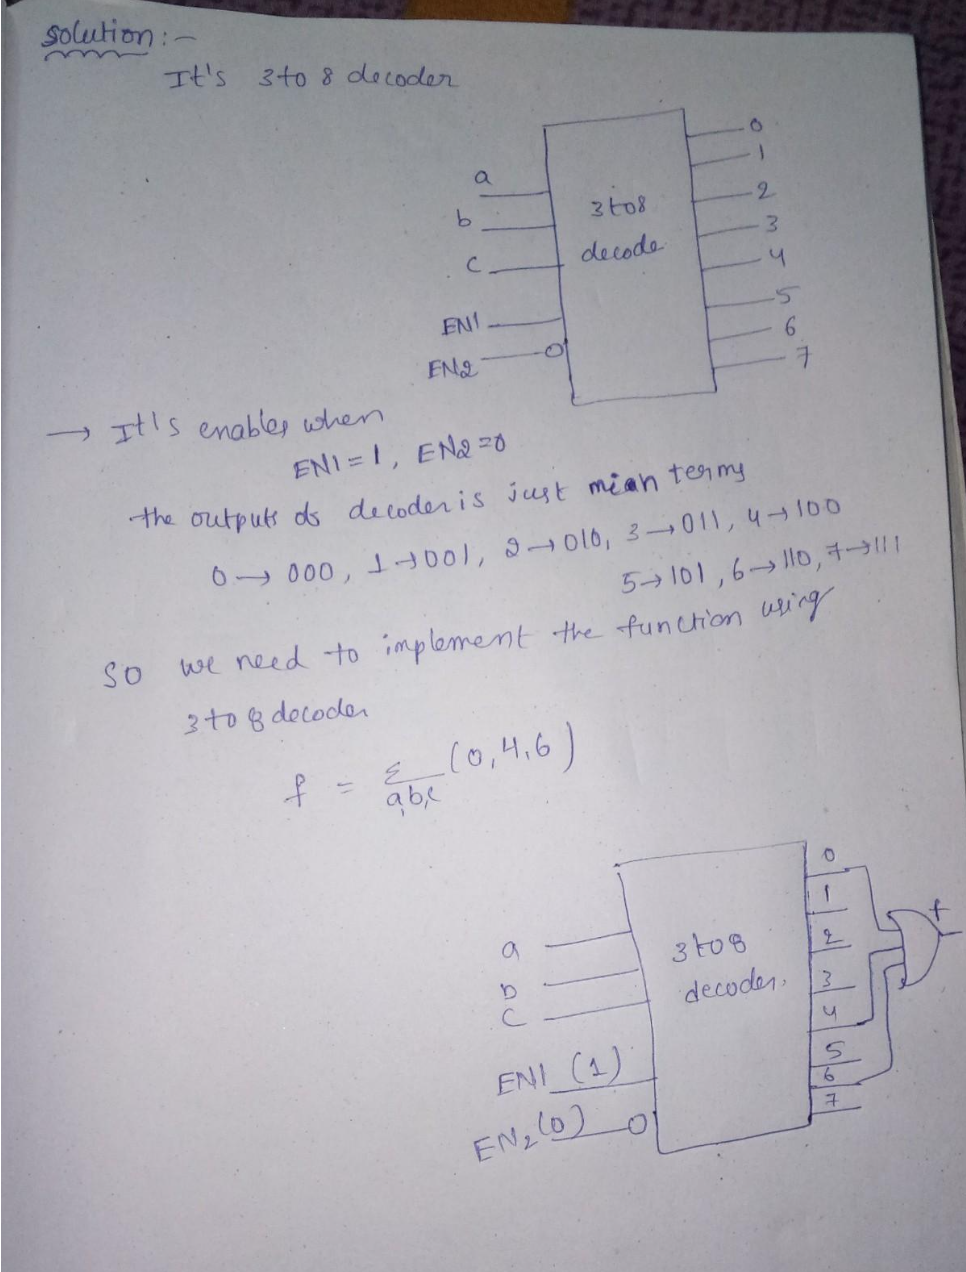 Solution :-
It's 3 to 8 decoder
a
b
c
EN1
EN2
3 to 8
decode
0
1
2
3
4
5
6
7
→ It's enables when
EN1 = 1, EN2 = 0
the outputs ds decoder is just mian terms
0 → 000, 1 → 001, 2 → 010, 3 → 011, 4 → 100
5 → 101, 6 → 110, 7 → 111
SO we need to implement the function using
3 to 8 decoder
f = Σ (0,4,6)
a,b,c
a
b
c
EN1 (1)
EN2 (0)
3 to 8
decoder.
0
1
2
3
4
5
6
7
f